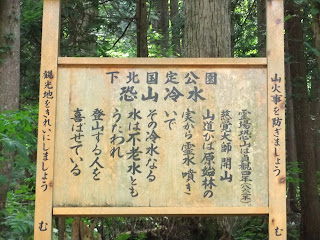 下北国定公園
恐山冷水
霊場恐山は貞観四年(八六二年)
慈覚大師開山
山道ひば原始林の
実から霊水噴き
いで
その冷水なる
水は不老水とも
うたわれ
登山する人を
喜ばせている
山火事を防ぎましょう
む
観光地をきれいにしましょう
む